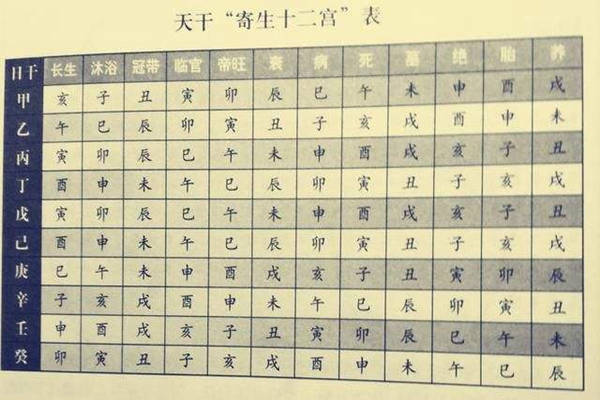 天干“寄生十二宫”表
日干 长生 沐浴 冠带 临官 帝旺 衰 病 死 墓 绝 胎 养
甲 亥 子 丑 寅 卯 辰 巳 午 未 申 酉 戌
乙 午 巳 辰 卯 寅 丑 子 亥 戌 酉 申 未
丙 寅 卯 辰 巳 午 未 申 酉 戌 亥 子 丑
丁 酉 申 未 午 巳 辰 卯 寅 丑 子 亥 戌
戊 寅 卯 辰 巳 午 未 申 酉 戌 亥 子 丑
己 酉 申 未 午 巳 辰 卯 寅 丑 子 亥 戌
庚 巳 午 未 申 酉 戌 亥 子 丑 寅 卯 辰
辛 子 亥 戌 酉 申 未 午 巳 辰 卯 寅 丑
壬 申 酉 戌 亥 子 丑 寅 卯 辰 巳 午 未
癸 卯 寅 丑 子 亥 戌 酉 申 未 午 巳 辰